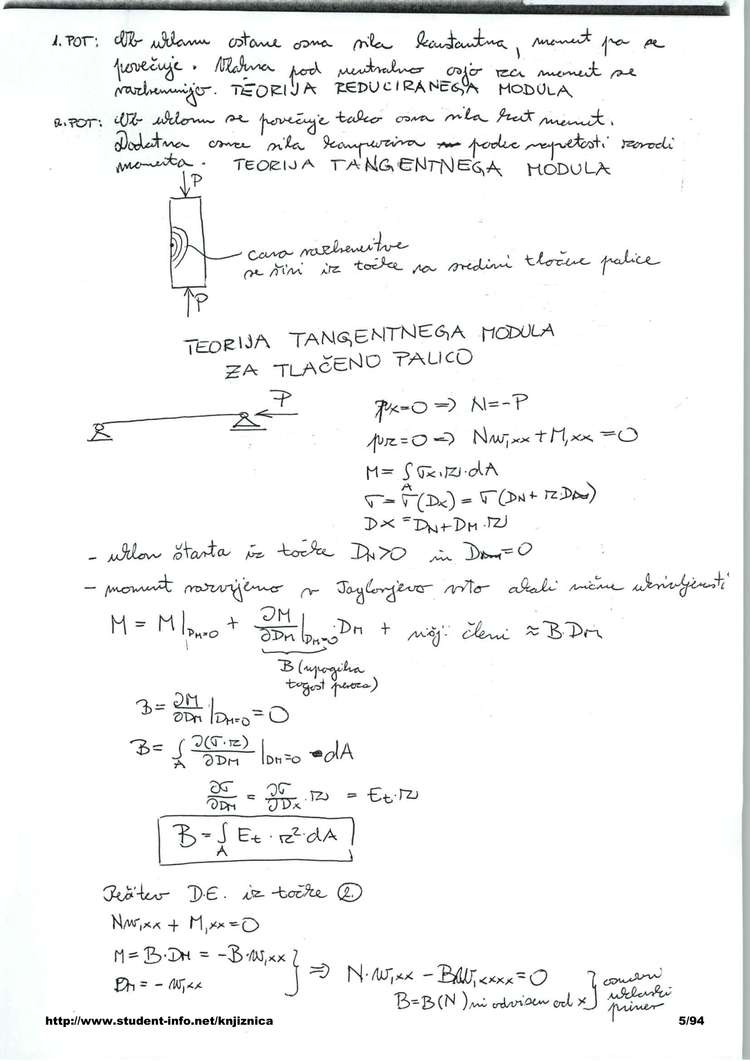 1. POT: Ob uklonu ostane osna sila konstantna, moment pa se
povečuje. Vlakna pod nevtralno osjo za moment se
razbremenijo. TEORIJA REDUCIRANEGA MODULA
2. POT: Ob uklonu se povečuje tako osna sila kot moment.
Dodatna osna sila kompenzira padec napetosti zaradi
momenta. TEORIJA TANGENTNEGA MODULA
P
cona razbremenitve
se širi iz točke na sredini tlačene palice
P
TEORIJA TANGENTNEGA MODULA
ZA TLAČENO PALICO
P
px=0 => N=-P
pz=0 => Nw,xx + M,xx = 0
M = ∫ σx·z·dA
A
σ = σ(Dx) = σ(DN + z·DM)
Dx = DN + DM·z
- uklon štarta iz točke DN>0 in DM=0
- moment razvijemo v Taylorjevo vrsto okoli nične ukrivljenosti
M = M|DM=0 + ∂M/∂DM|DM=0 · DM + višji členi ≈ B·DM
B (upogibna
togost prereza)
B = ∂M/∂DM |DM=0 = 0
B = ∫ ∂(σ·z)/∂DM |DM=0 dA
A
∂σ/∂DM = ∂σ/∂Dx · z = Et·z
B = ∫ Et · z² · dA
A
Rešitev D.E. iz točke 2.
Nw,xx + M,xx = 0
M = B·DM = -B·w,xx
DM = - w,xx
=> N·w,xx - Bw,xxxx = 0
B=B(N) ni odvisen od x
osnovni
uklonski
primer
http://www.student-info.net/knjiznica
5/94